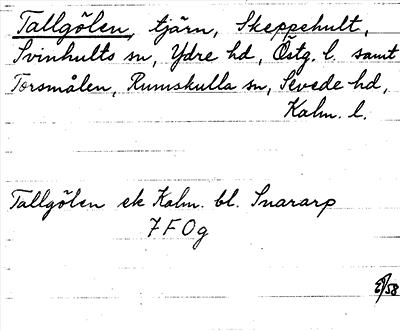 Tallgölen, tjärn, Skeppehult,
Svinhults sn, Ydre hd, Östg. l. samt
Torsmålen, Rumskulla sn, Sevede hd,
Kalm. l.
Tallgölen ek Kalm. bl. Snararp
7 F 0 g